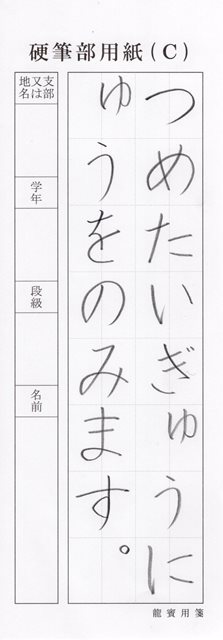 硬筆部用紙(C)
つめたいぎゅうに
ゅうをのみます。
支部
又は
地名
学年
段級
名前
龍賓用箋